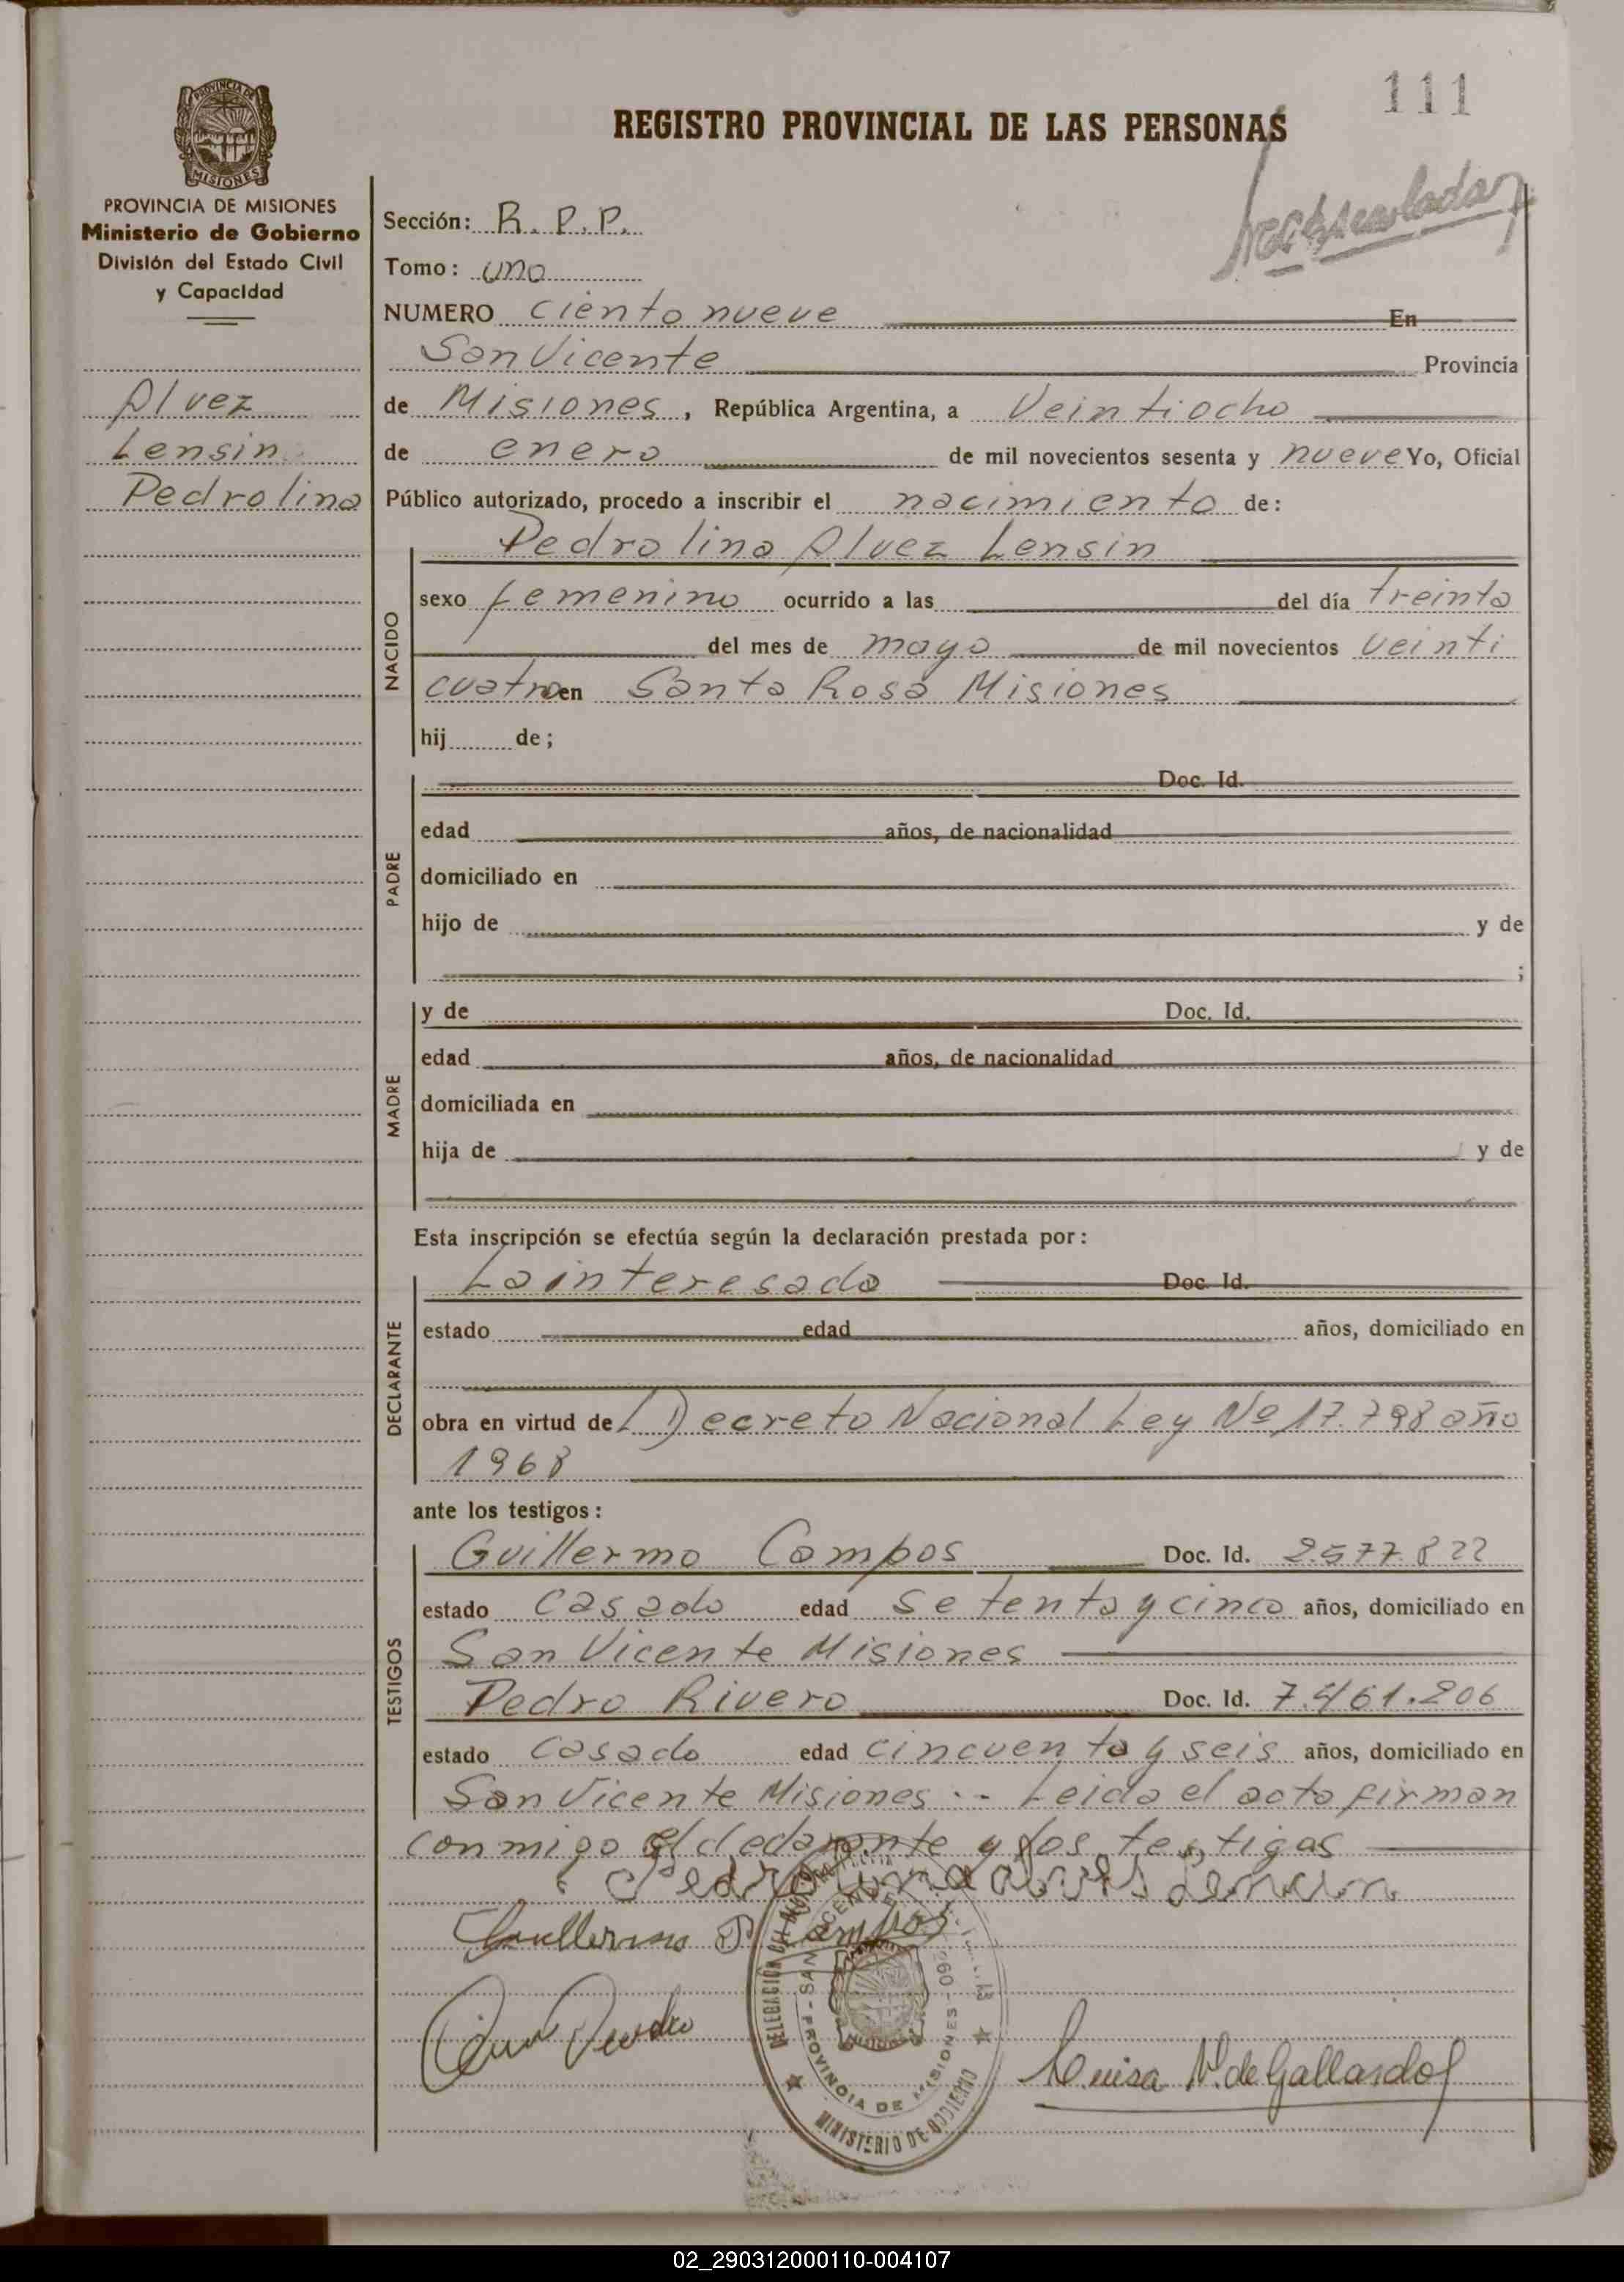 111
REGISTRO PROVINCIAL DE LAS PERSONAS
PROVINCIA DE MISIONES
Ministerio de Gobierno
División del Estado Civil
y Capacidad
Alvez
Lensin
Pedrolina
Sección: R. P. P.
Tomo: uno
NUMERO ciento nueve En
San Vicente Provincia
de Misiones, República Argentina, a Veintiocho
de enero de mil novecientos sesenta y nueve Yo, Oficial
Público autorizado, procedo a inscribir el nacimiento de:
NACIDO
Pedrolina Alvez Lensin
sexo femenino ocurrido a las del día treinta
del mes de mayo de mil novecientos veinti
cuatro en Santa Rosa Misiones
hij de;
PADRE
Doc. Id.
edad años, de nacionalidad
domiciliado en
hijo de y de
;
MADRE
y de Doc. Id.
edad años, de nacionalidad
domiciliada en
hija de y de
Esta inscripción se efectúa según la declaración prestada por:
DECLARANTE
La interesada Doc. Id.
estado edad años, domiciliado en
obra en virtud de Decreto Nacional Ley Nº 17.798 año
1968
ante los testigos:
TESTIGOS
Guillermo Campos Doc. Id. 2.577.822
estado Casado edad setenta y cinco años, domiciliado en
San Vicente Misiones
Pedro Rivero Doc. Id. 7.461.206
estado Casado edad cincuenta y seis años, domiciliado en
San Vicente Misiones.- Leida el acta firman
conmigo el declarante y los testigos
Guillermo Campos
Luisa V. de Gallardo
SAN VICENTE
PROVINCIA DE MISIONES
MINISTERIO DE GOBIERNO
02_290312000110-004107